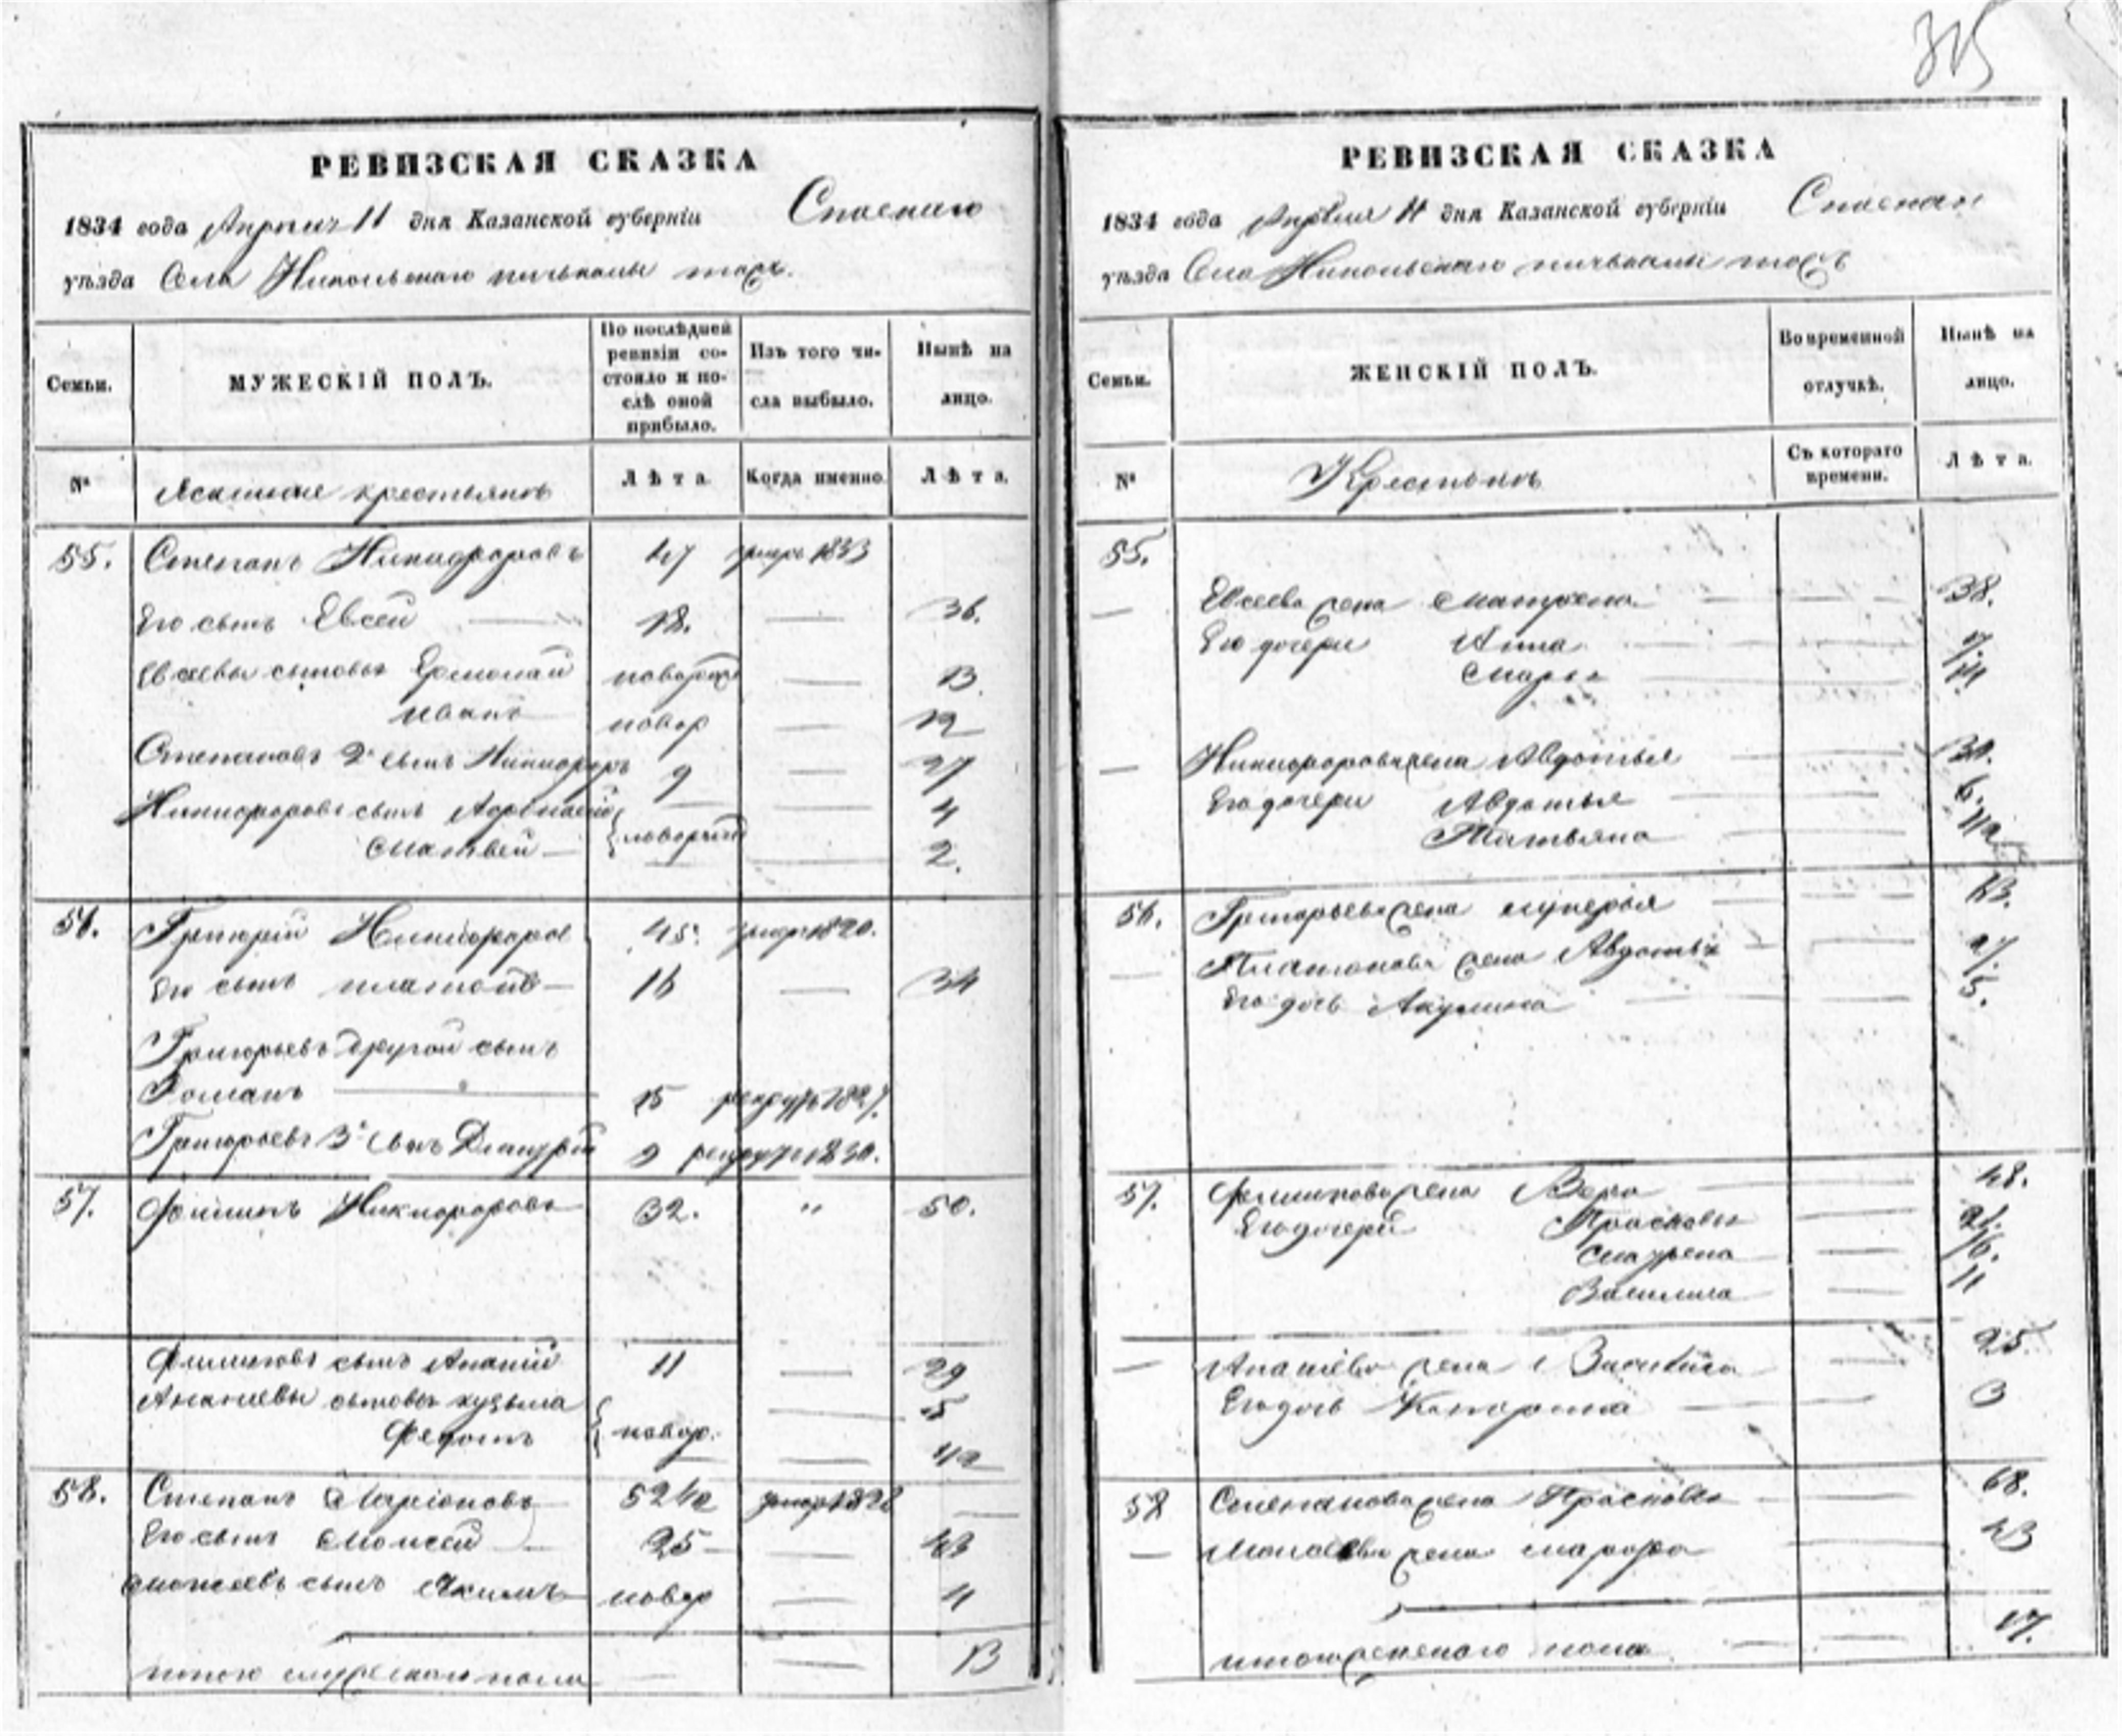 315
РЕВИЗСКАЯ СКАЗКА
1834 года Апреля 11 дня Казанской губерніи Спаскаго
уѣзда Села Никольскаго
Семьи.
МУЖЕСКІЙ ПОЛЪ.
По послѣдней ревизіи состояло и послѣ оной прибыло.
Изъ того числа выбыло.
Нынѣ на лицо.
№
Ясашные крестьянъ
Лѣта.
Когда именно.
Лѣта.
55. Степанъ Никифоровъ 47 умеръ 1833
Его сынъ Евсей 18. 36.
Евсеевы сыновья Ермолай 13
Иванъ новор 12
Степановъ 2й сынъ Никифоръ 9 27
Никифоровъ сынъ 4
Матвей 2.
56. Григорій Никифоровъ 45. умеръ 1820.
Его сынъ Платонъ 16 34
Григорьевъ другой сынъ
Романъ 15 рекрутъ 1827.
Григорьевъ 3й сынъ Дмитрій 9 рекрутъ 1830.
57. Никифоровъ 32. " 50.
сынъ Ананій 11 29
Ананіевы сыновья Кузьма 5
Федотъ новор.
58. Степанъ Ларіоновъ 52 умеръ 1828
Его сынъ Моисей 25 43
Моисеевъ сынъ Якимъ новор 4
Итого мужескаго пола 13
РЕВИЗСКАЯ СКАЗКА
1834 года Апреля 11 дня Казанской губерніи Спаскаго
уѣзда Села Никольскаго
Семьи.
ЖЕНСКІЙ ПОЛЪ.
Во временной отлучкѣ.
Нынѣ на лицо.
№
Крестьянъ
Съ котораго времени.
Лѣта.
55.
Евсеева жена Матрена 38.
Его дочери Анна
Марья 14
Никифорова жена Авдотья 30.
Его дочери Авдотья 6.
Татьяна
56. Григорьева жена Лукерья
Платонова жена Авдотья 27.
Его дочь Акулина 5.
57. жена Вера 48.
Его дочери Прасковья
16.
Василиса 11
Ананіева жена Василиса 25.
Его дочь 3
58 Степанова жена Прасковья 68.
Моисеева жена Марфа 43
Итого женскаго пола 17.